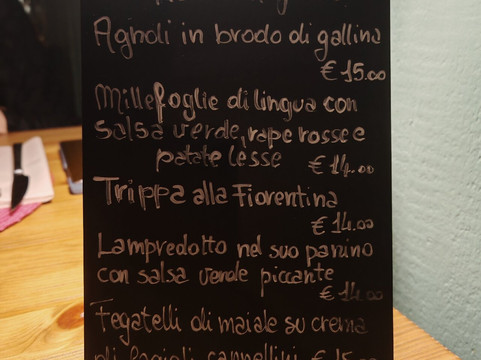 Agnoli in brodo di gallina
€ 15.00
Millefoglie di lingua con
salsa verde, rape rosse e
patate lesse € 14.00
Trippa alla Fiorentina
€ 14.00
Lampredotto nel suo panino
con salsa verde piccante
€ 14.00
Fegatelli di maiale su crema
di fagioli cannellini €